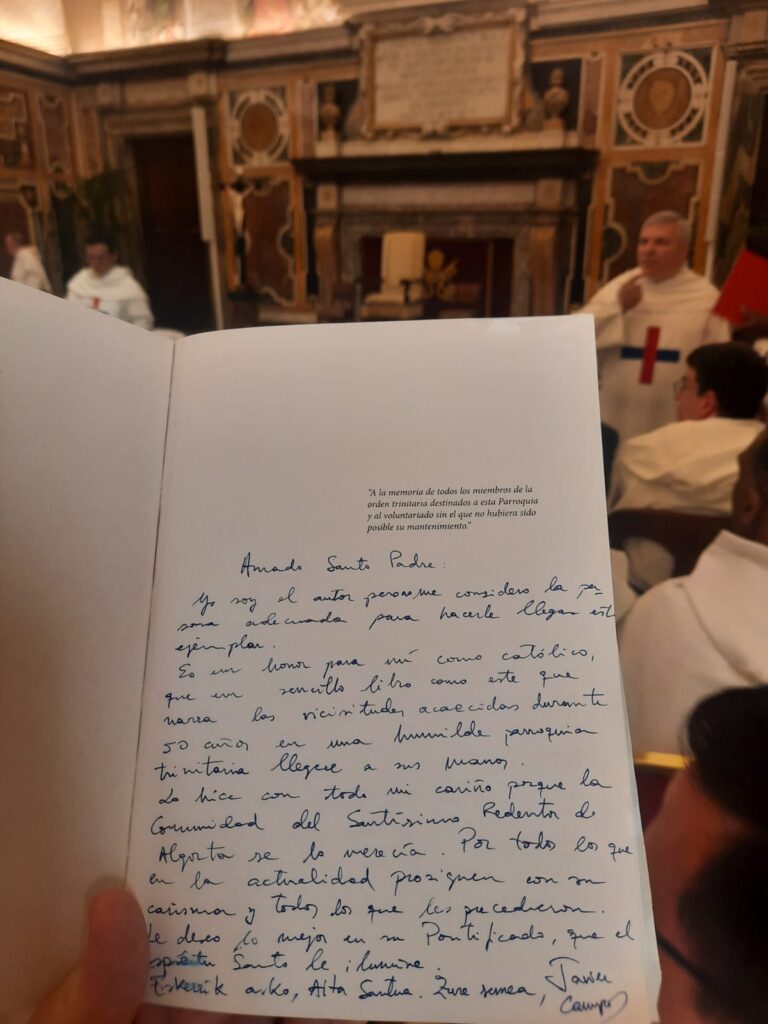 "A la memoria de todos los miembros de la
orden trinitaria destinados a esta Parroquia
y al voluntariado sin el que no hubiera sido
posible su mantenimiento."
Amado Santo Padre:
Yo soy el autor pero no me considero la per-
sona adecuada para hacerle llegar este
ejemplar.
Es un honor para mí como católico,
que un sencillo libro como este que
narra las vicisitudes acaecidas durante
50 años en una humilde parroquia
trinitaria llegue a sus manos.
Lo hice con todo mi cariño porque la
Comunidad del Santísimo Redentor de
Algorta se lo merecía. Por todos los que
en la actualidad prosiguen con su
carisma y todos los que les precedieron.
Le deseo lo mejor en su Pontificado, que el
Espíritu Santo le ilumine.
Eskerrik asko, Aita Santua. Zure semea, Javier
Campos